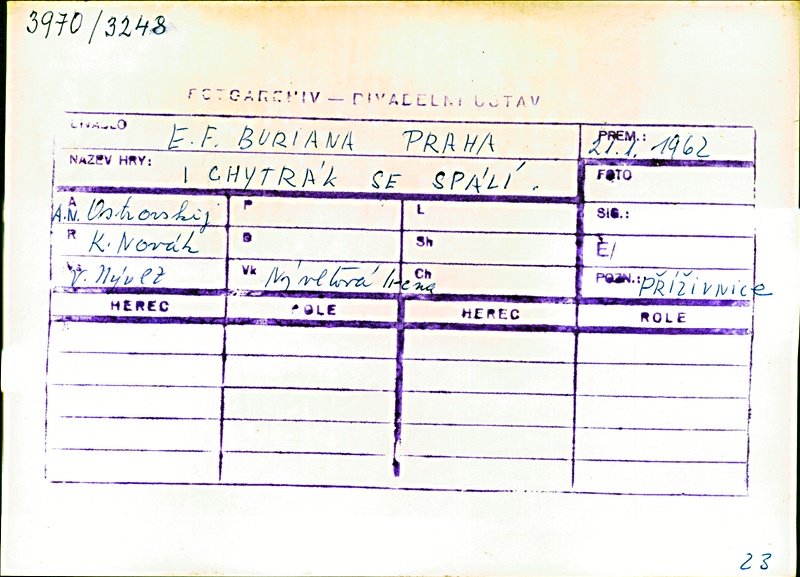 3970/3248
FOTOARCHIV — DIVADELNÍ ÚSTAV
DIVADLO E.F. BURIANA PRAHA PREM.: 27.1. 1962
NÁZEV HRY: I CHYTRÁK SE SPÁLÍ. FOTO
A A.N. Ostrovskij P L SIG.:
R K. Novák B Sh Č/
Vs V. Nývlt Vk Nývltová Irena Ch POZN.: PŘÍŽIVNICE
HEREC ROLE HEREC ROLE
23